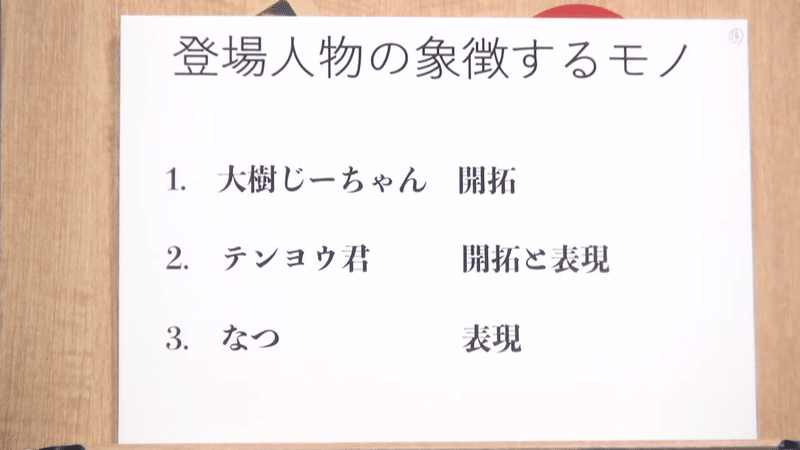 登場人物の象徴するモノ
1. 大樹じーちゃん 開拓
2. テンヨウ君 開拓と表現
3. なつ 表現